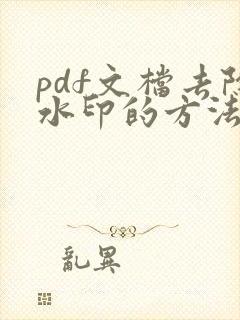 pdf文檔去除
水印的方法
亂異